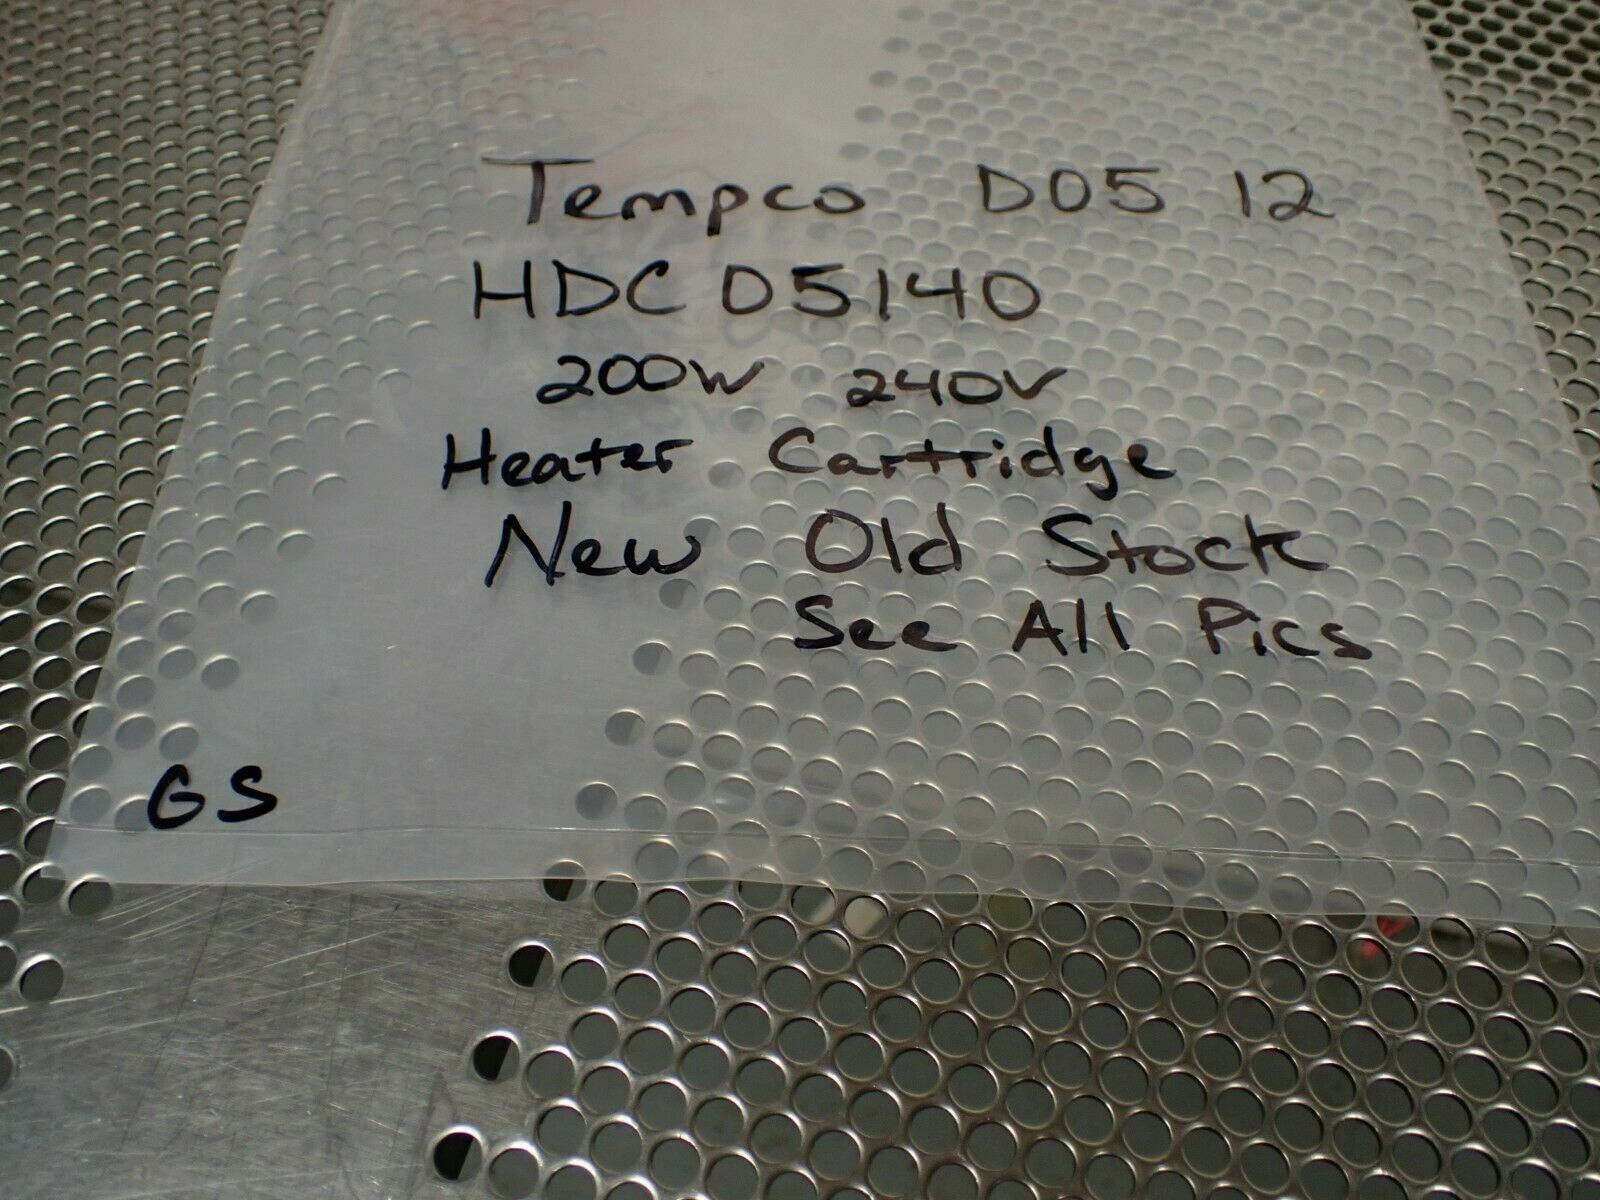 Tempco D05 12
HDC05140
200W 240V
Heater Cartridge
New Old Stock
See All Pics
GS